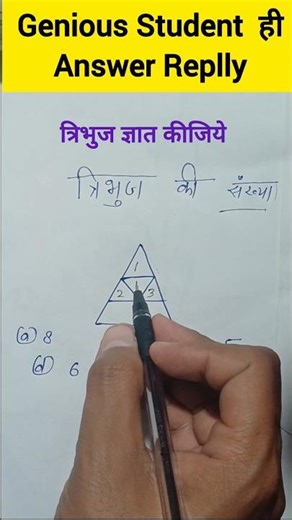 Genious Student ही
Answer Replly
त्रिभुज ज्ञात कीजिये
त्रिभुज की संख्या
1
2 1 3
(a) 8
(d) 6